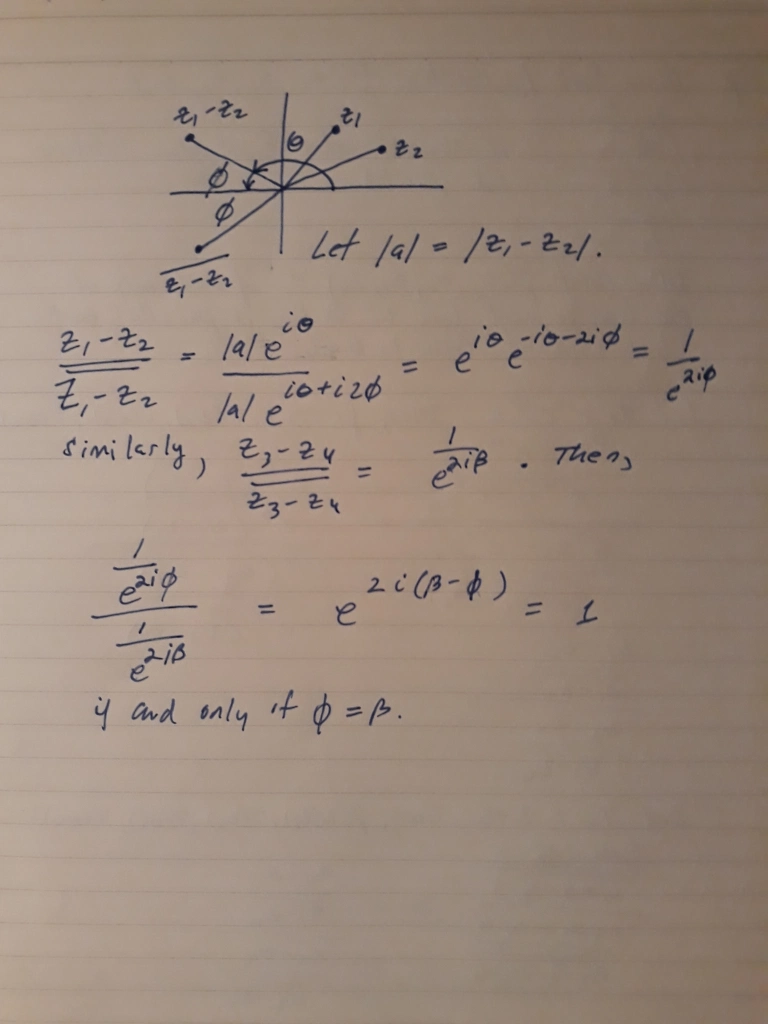 z₁-z₂
θ
z₁
z₂
φ
φ
z̅₁̅-̅z̅₂̅
Let |a| = |z₁-z₂|.
(z₁-z₂)/(z̅₁̅-̅z̅₂̅) = |a|e^{iθ}/|a|e^{iθ+i2φ} = e^{iθ} e^{-iθ-2iφ} = 1/e^{2iφ}
similarly, (z₃-z₄)/(z̅₃̅-̅z̅₄̅) = 1/e^{2iβ} . Then,
(1/e^{2iφ})/(1/e^{2iβ}) = e^{2i(β-φ)} = 1
if and only if φ = β.